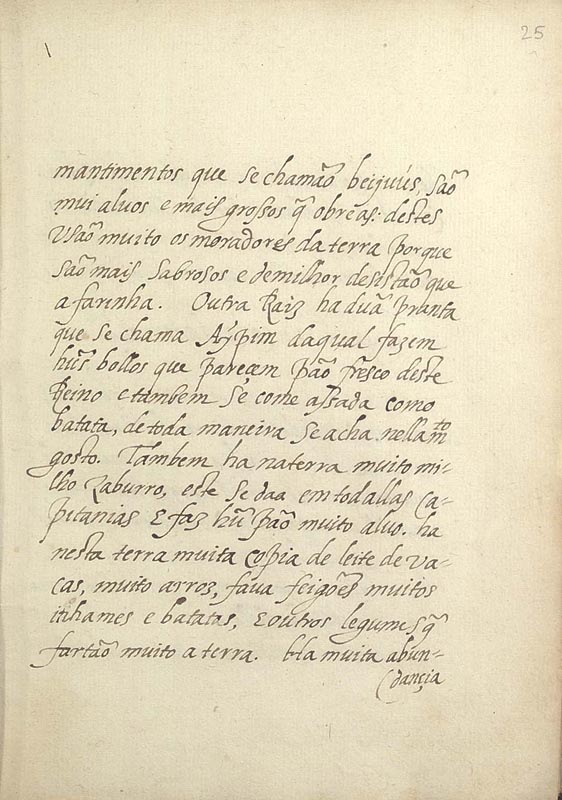 25
mantimentos que se chamaõ beijuús, saõ
mui aluos e mais grossos q̃ obreas: destes
Vsaõ muito os moradores da terra porque
saõ mais sabrosos e de milhor desistaõ que
a farinha. Outra Raiz ha duã pranta
que se chama Aÿpim da qual fazem
hũs bollos que pareçem paõ fresco deste
Reino e tambem se come assada como
batata, de toda maneira se acha nella mto
gosto. Tambem ha na terra muito mi-
lho zaburro, este se daa em todallas Ca-
pitanias E faz hũ paõ muito aluo. ha
nesta terra muita copia de leite de va-
cas, muito arroz, faua feigões muitos
inhames e batatas, E outros legumes q̃
fartaõ muito a terra. Ha muita abun-
dançia